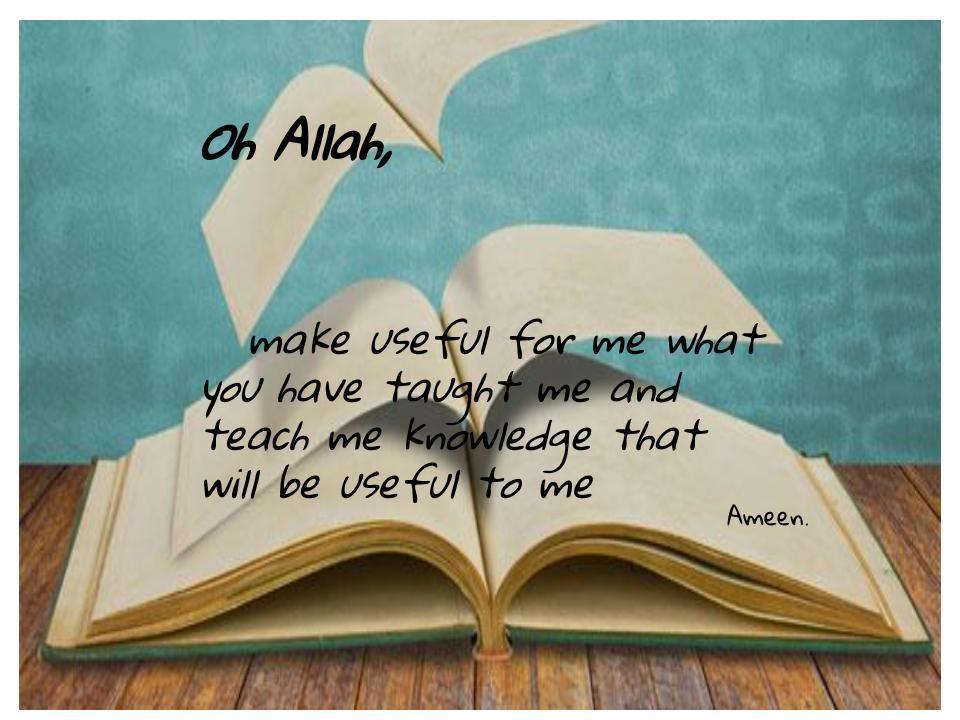 Oh Allah,
make useful for me what
you have taught me and
teach me knowledge that
will be useful to me
Ameen.